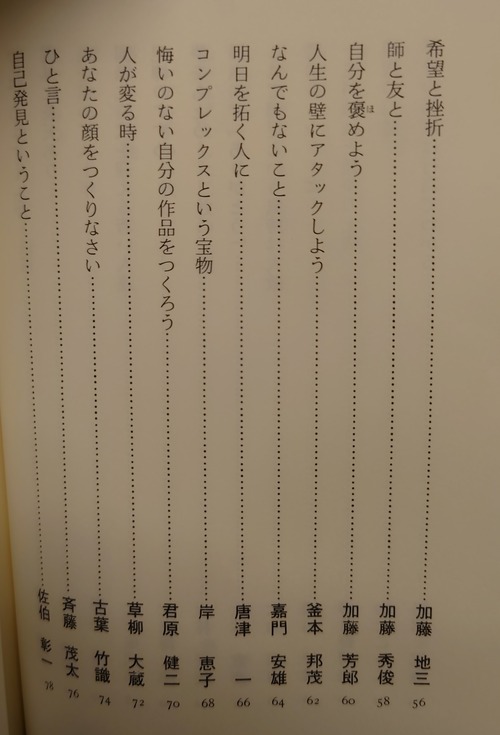 希望と挫折……加藤 地三 56
師と友と……加藤 秀俊 58
自分を褒めよう……加藤 芳郎 60
人生の壁にアタックしよう……釜本 邦茂 62
なんでもないこと……嘉門 安雄 64
明日を拓く人に……唐津 一 66
コンプレックスという宝物……岸 恵子 68
悔いのない自分の作品をつくろう……君原 健二 70
人が変る時……草柳 大蔵 72
あなたの顔をつくりなさい……古葉 竹識 74
ひと言……斉藤 茂太 76
自己発見ということ……佐伯 彰一 78